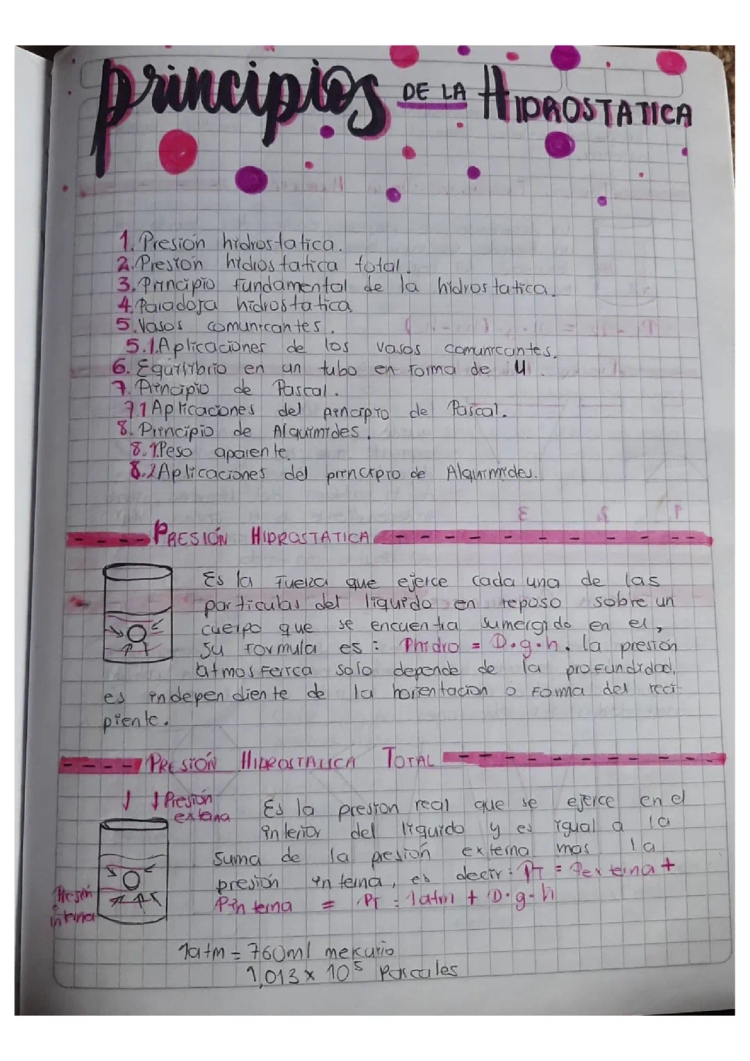 principios DE LA HIDROSTATICA
1. Presión hidrostatica.
2. Presión hidrostatica total.
3. Principio fundamental de la hidrostatica.
4. Paradoja hidrostatica
5. Vasos comunicantes.
5.1. Aplicaciones de los vasos comunicantes.
6. Equilibrio en un tubo en forma de U.
7. Principio de Pascal.
7.1 Aplicaciones del principio de Pascal.
8. Principio de Alquimides.
8.1 Peso aparente.
8.2 Aplicaciones del principio de Alquimides.
PRESIÓN HIDROSTATICA
Es la fuerza que ejerce cada una de las
particulas del liquido en reposo sobre un
cuerpo que se encuentra sumergido en el,
su formula es: Phidro = D.g.h. la presión
atmosferica solo depende de la profundidad,
es independiente de la horientacion o forma del reci
piente.
PRESIÓN HIDROSTATICA TOTAL
↓ ↓ Presión
externa
Es la presion real que se ejerce en el
interior del liquido y es igual a la
suma de la pesión externa mas la
presión interna, es decir: PT = Pexterna +
Pinterna = PT = 1atm + D.g.h
Presión
interna
1atm = 760ml mercurio
1,013 x 10⁵ Pascales